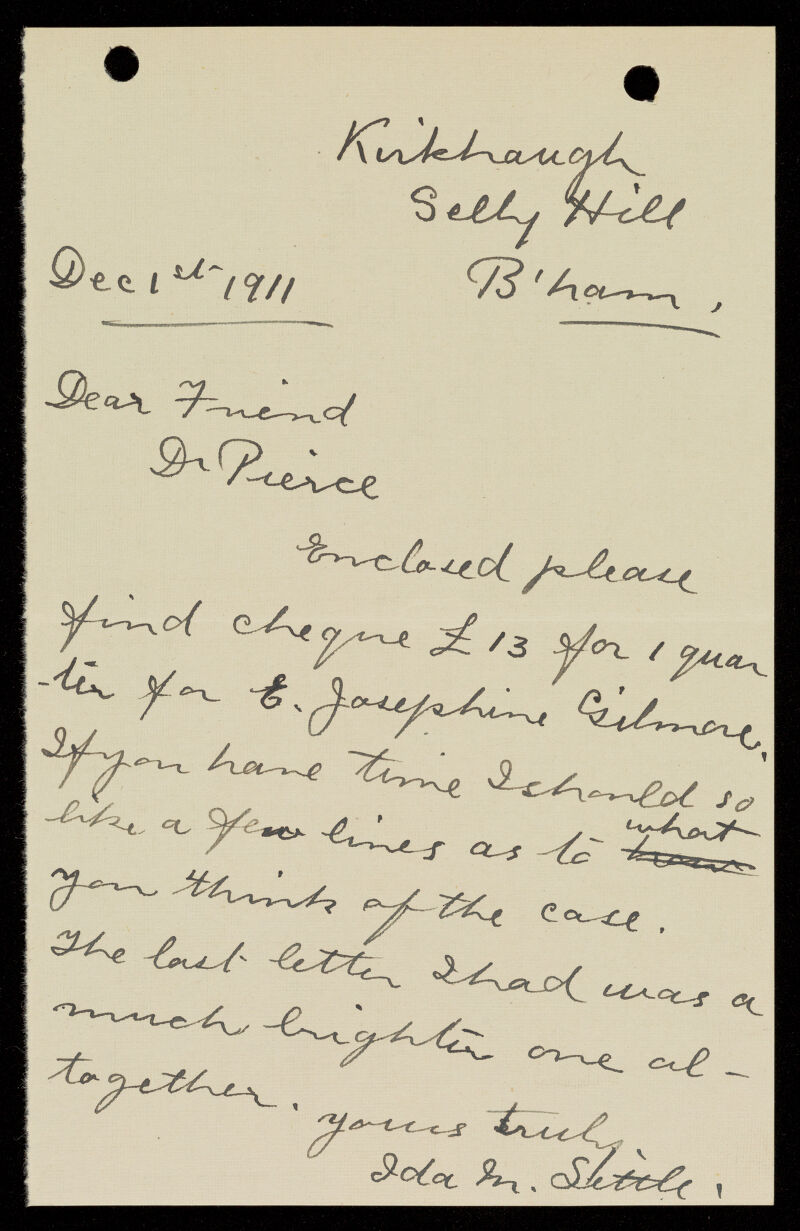 Kirkhaugh
Selly Hill
B'ham.
Dec 1st 1911
Dear Friend
Dr Pierce
Enclosed please
find cheque £13 for 1 quar
-ter for E. Josephine Gilmore.
If you have time I should so
like a few lines as to what
you think of the case.
The last letter I had was a
much brighter one al-
together. yours truly
Ida M. Settle.